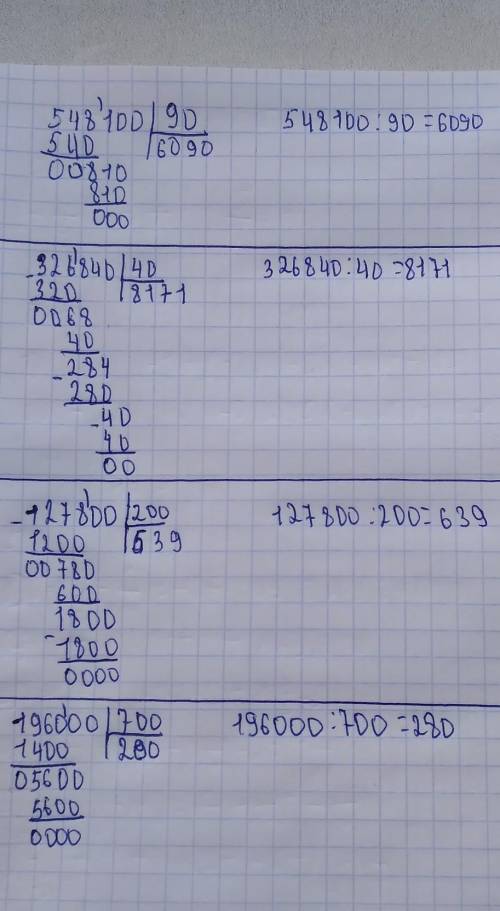 548'100 90 548100:90=6090
540 6090
00810
810
000
-326'840 40 326840:40=8171
320 8171
0068
40
-284
280
-40
40
00
-127'800 200 127800:200=639
1200 639
00780
600
1800
-1800
0000
196'000 700 196000:700=280
1400 280
05600
5600
0000